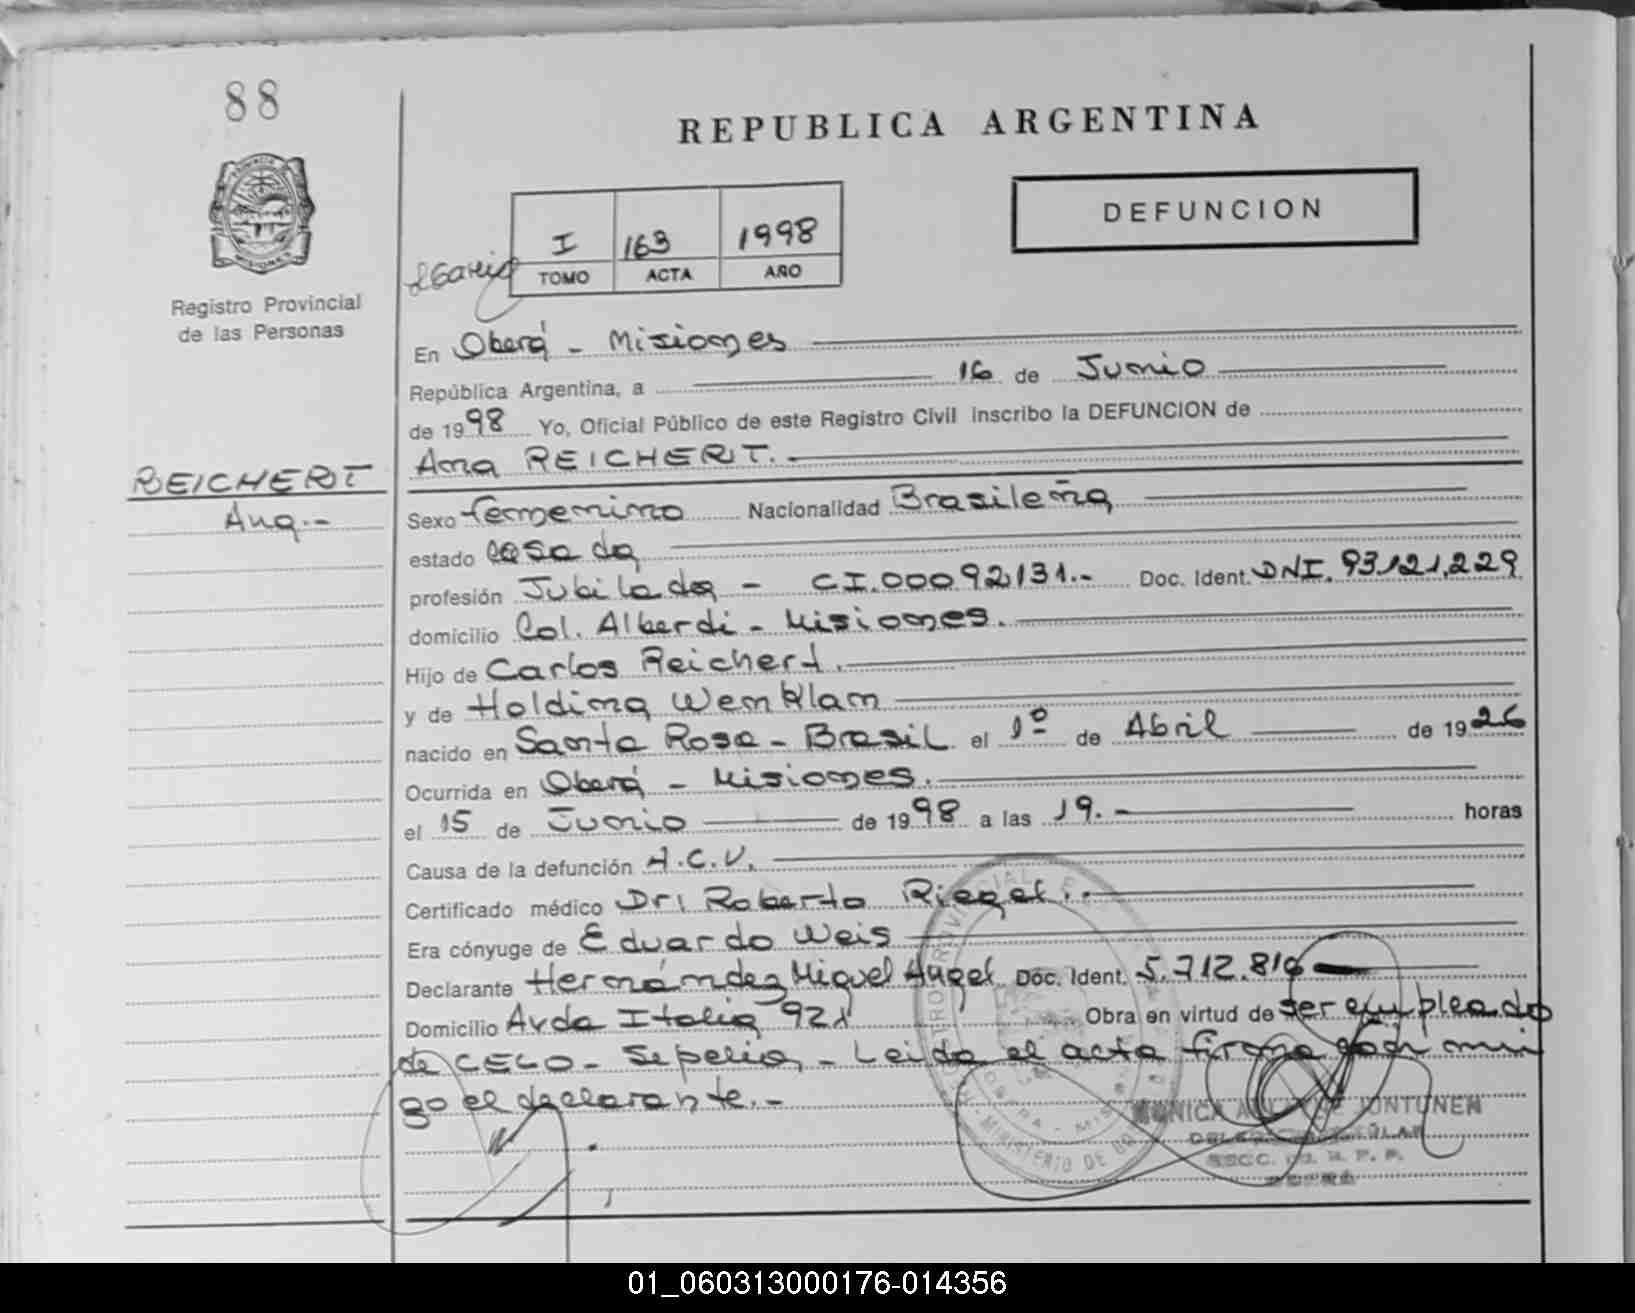 88
REPUBLICA ARGENTINA
DEFUNCION
I 163 1998
TOMO ACTA AÑO
MISIONES
Registro Provincial
de las Personas
En Oberá - Misiones
República Argentina, a 16 de Junio
de 1998 Yo, Oficial Público de este Registro Civil inscribo la DEFUNCION de
Ana REICHERT.-
REICHERT
Ana.-
Sexo femenino Nacionalidad Brasileña
estado casada
profesión Jubilada - CI.00092131.- Doc. Ident. DNI. 93.121.229
domicilio Col. Alberdi - Misiones.
Hijo de Carlos Reichert.
y de Holdina Wenklan
nacido en Santa Rosa - Brasil el 1º de Abril de 1926
Ocurrida en Oberá - Misiones.
el 15 de Junio de 1998 a las 19.- horas
Causa de la defunción A.C.V.
Certificado médico Dr. Roberto Riegel.-
Era cónyuge de Eduardo Weis
Declarante Hernández Miguel Angel Doc. Ident. 5.712.819
Domicilio Avda Italia 921 Obra en virtud de ser empleado
de CELO - Sepelio, - Leida el acta firma con mi
go el declarante.-
MONICA JUNTUNEN
01_060313000176-014356